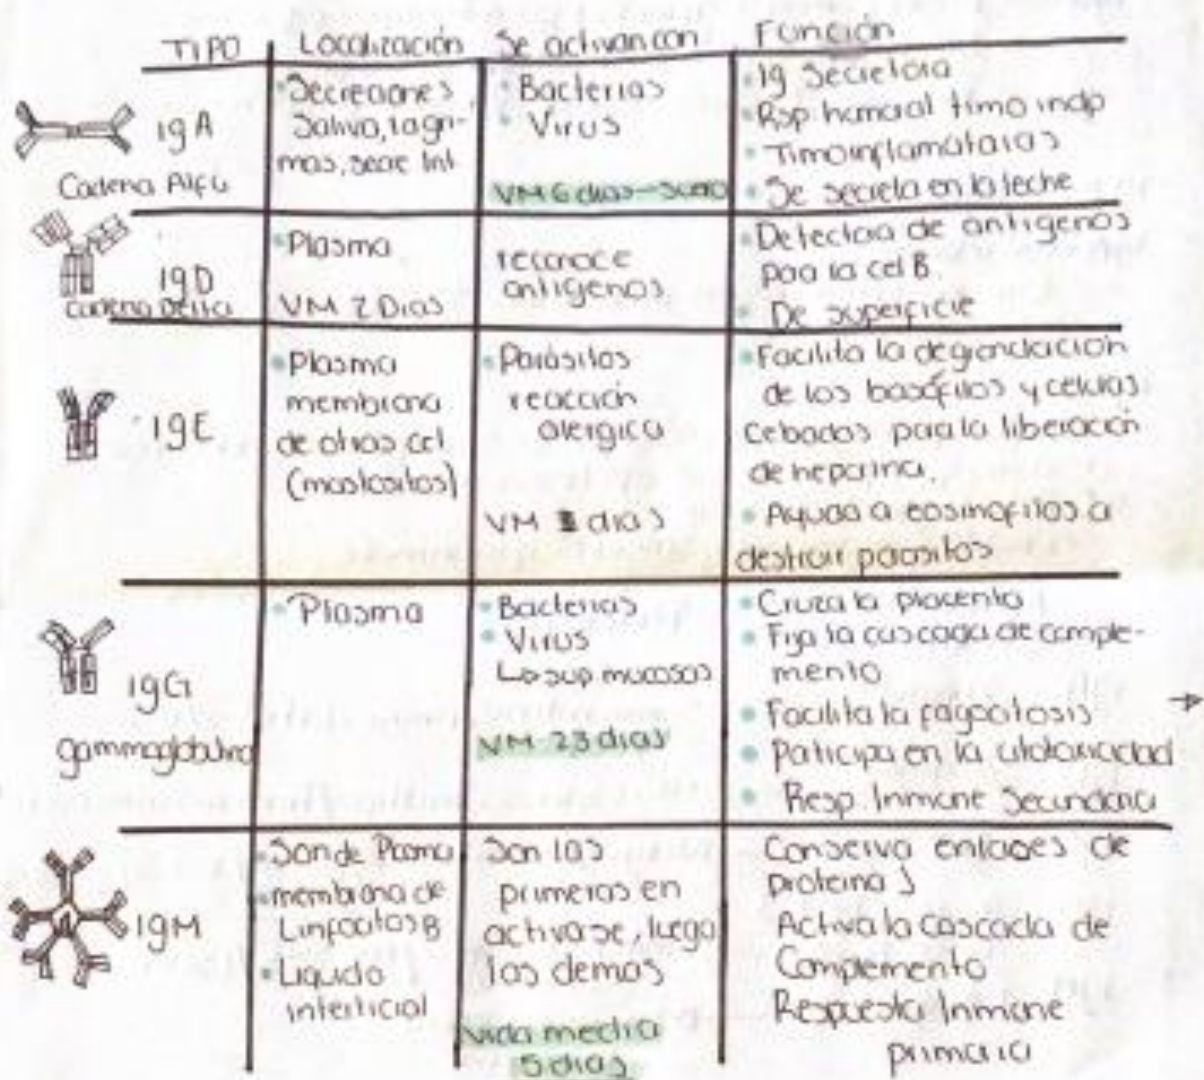 TIPO Localización Se activan con Función
IgA
Cadena Alfa
• Secreciones
Saliva, lagri-
mas, secre Int
• Bacterias
• Virus
VM 6 dias - suero
• Ig Secretora
• Rsp. humoral timo indp
• Se secreta en la leche
IgD
Cadena Delta
• Plasma
VM 2 Dias
reconoce
antigenos
• Detectora de antigenos
para la cel B.
• De superficie
IgE
• Plasma
membrana
de otras cel
(mastositos)
• Parásitos
reacción
alergica
VM dias
• Facilita la
de los basófilos y celulas
Cebados para la liberación
de heparina.
• Ayuda a eosinofilos a
destruir parasitos
IgG
gammaglobulina
• Plasma
• Bacterias
• Virus
sup mucosas
VM 23 dias
• Cruza la placenta
• Fija la cascada de comple-
mento
• Facilita la fagocitosis
• Participa en la citotoxicidad
• Resp. Inmune Secundaria
IgM
• Son de Plasma
• membrana de
Linfocitos B
• Liquido
intersticial
Son las
primeras en
activarse, luego
las demas
Vida media
5 dias
Conserva enlaces de
proteina J
Activa la cascada de
Complemento
Respuesta Inmune
primaria